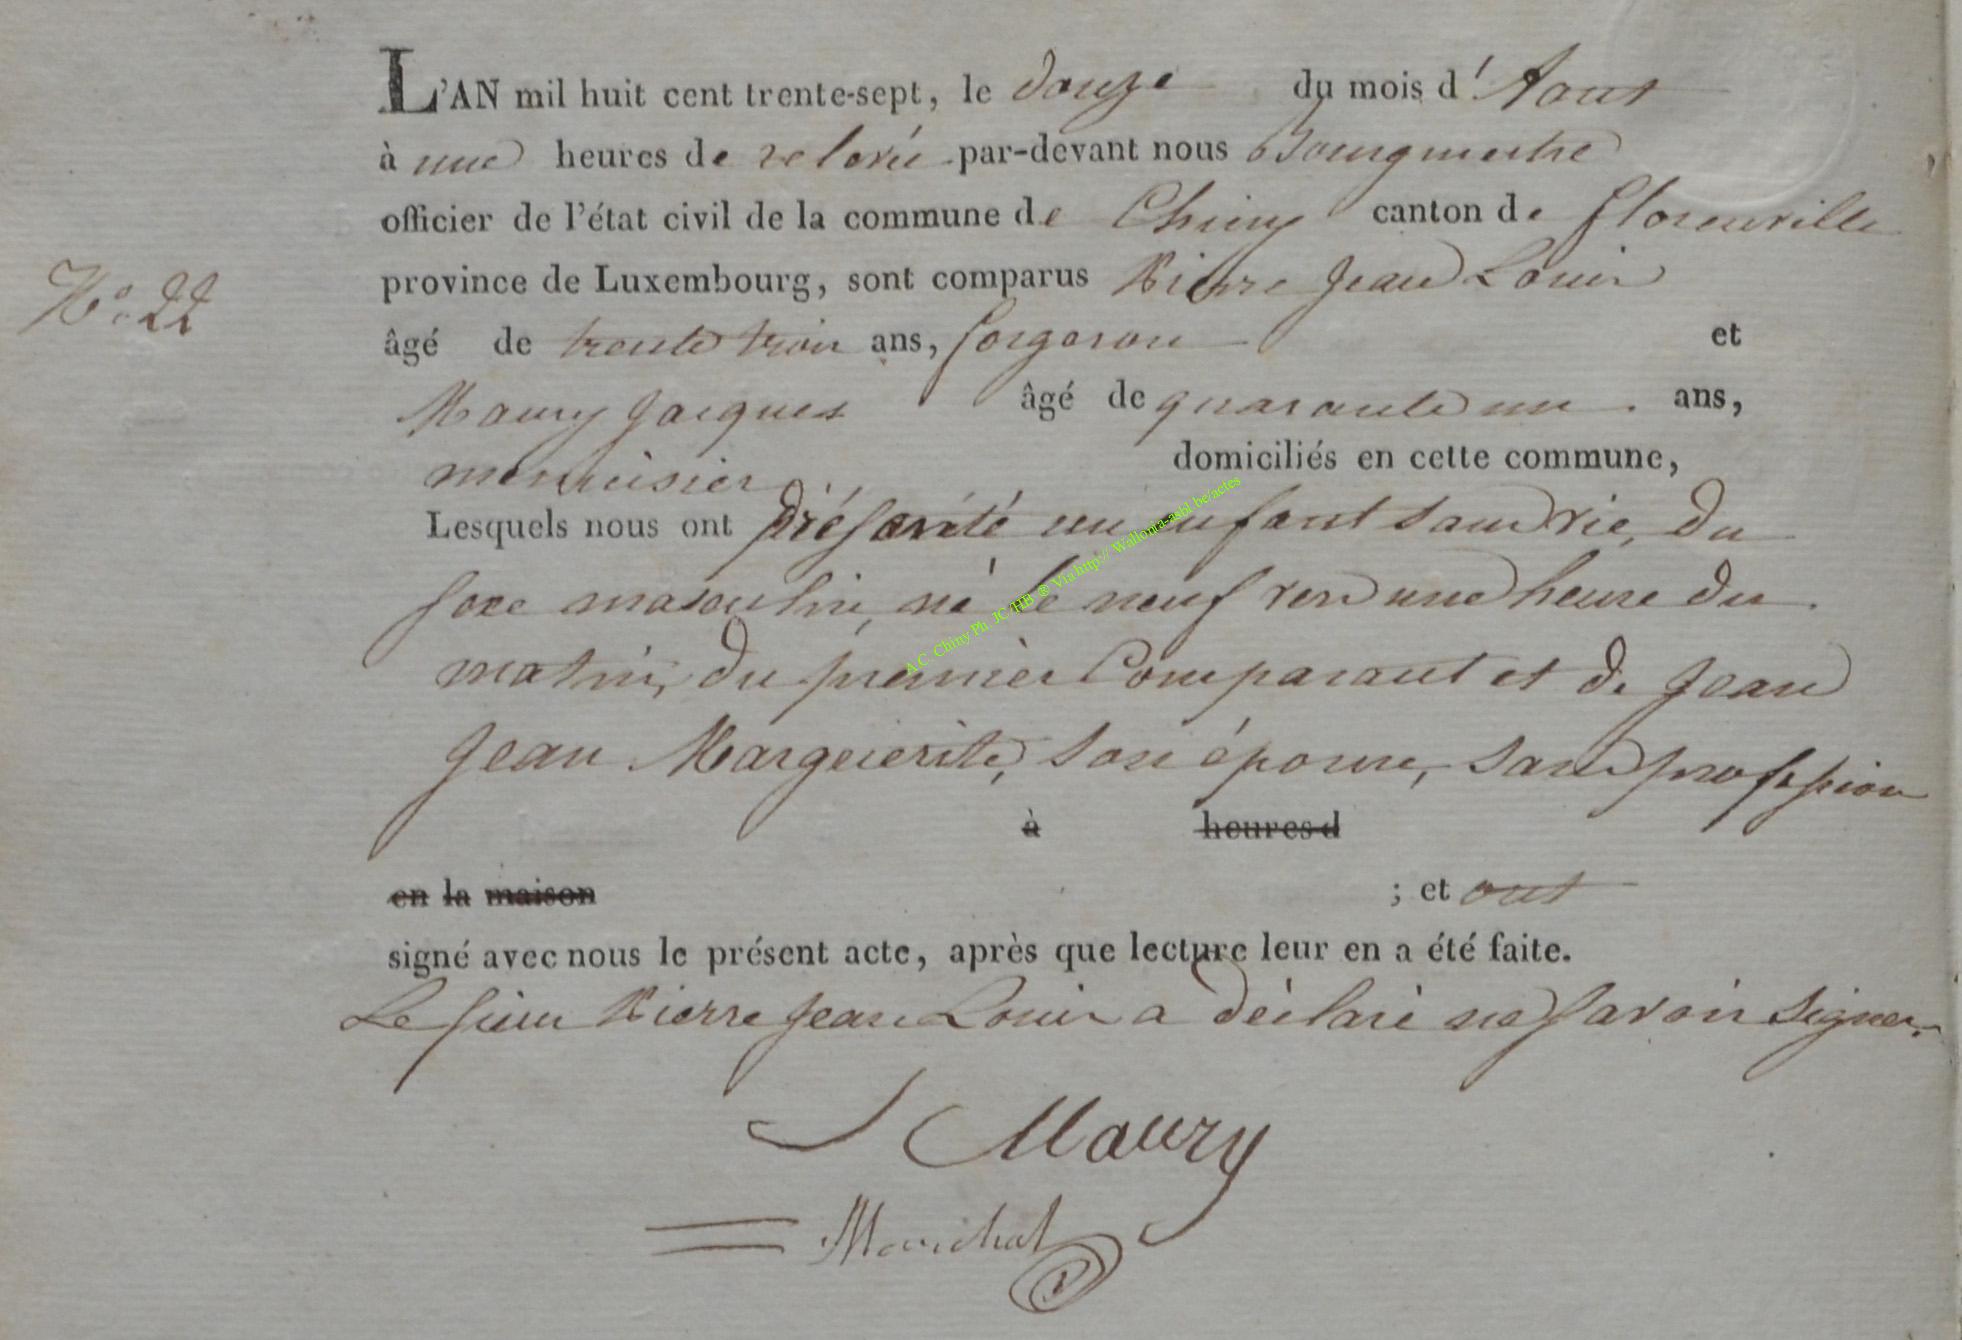 L'AN mil huit cent trente-sept, le douze du mois d'Aout
à une heures de relevée par-devant nous Bourgmestre
officier de l'état civil de la commune de Chiny canton de florenville
province de Luxembourg, sont comparus Pierre Jean Louis
N° 22
âgé de trente trois ans, forgeron et
Maury Jacques âgé de quarante un ans,
menuisier domiciliés en cette commune,
Lesquels nous ont présenté un enfant sans vie, du
sexe masculin, né le neuf vers une heure du
matin, du premier Comparant et de Jean
Jean Marguerite, son épouse, sans profession
à heures d
en la maison ; et ont
signé avec nous le présent acte, après que lecture leur en a été faite.
Le sieur Pierre Jean Louis a déclaré ne savoir signer.
J Maury
A.C. Chiny Ph JC HB ® Via http:// Wallonia-asbl.be/actes